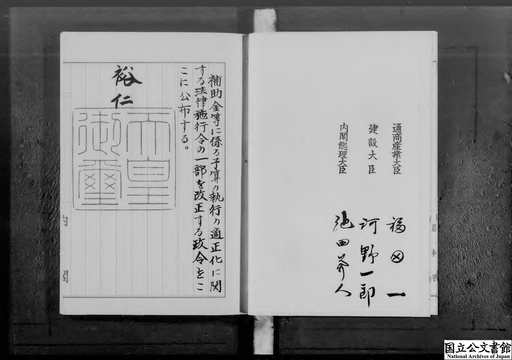 補助金等に係る予算の執行の適正化に関
する法律施行令の一部を改正する政令をこ
こに公布する。
裕仁
天皇
御璽
通商産業大臣 福田一
建設大臣 河野一郎
内閣総理大臣 池田勇人
国立公文書館
National Archives of Japan